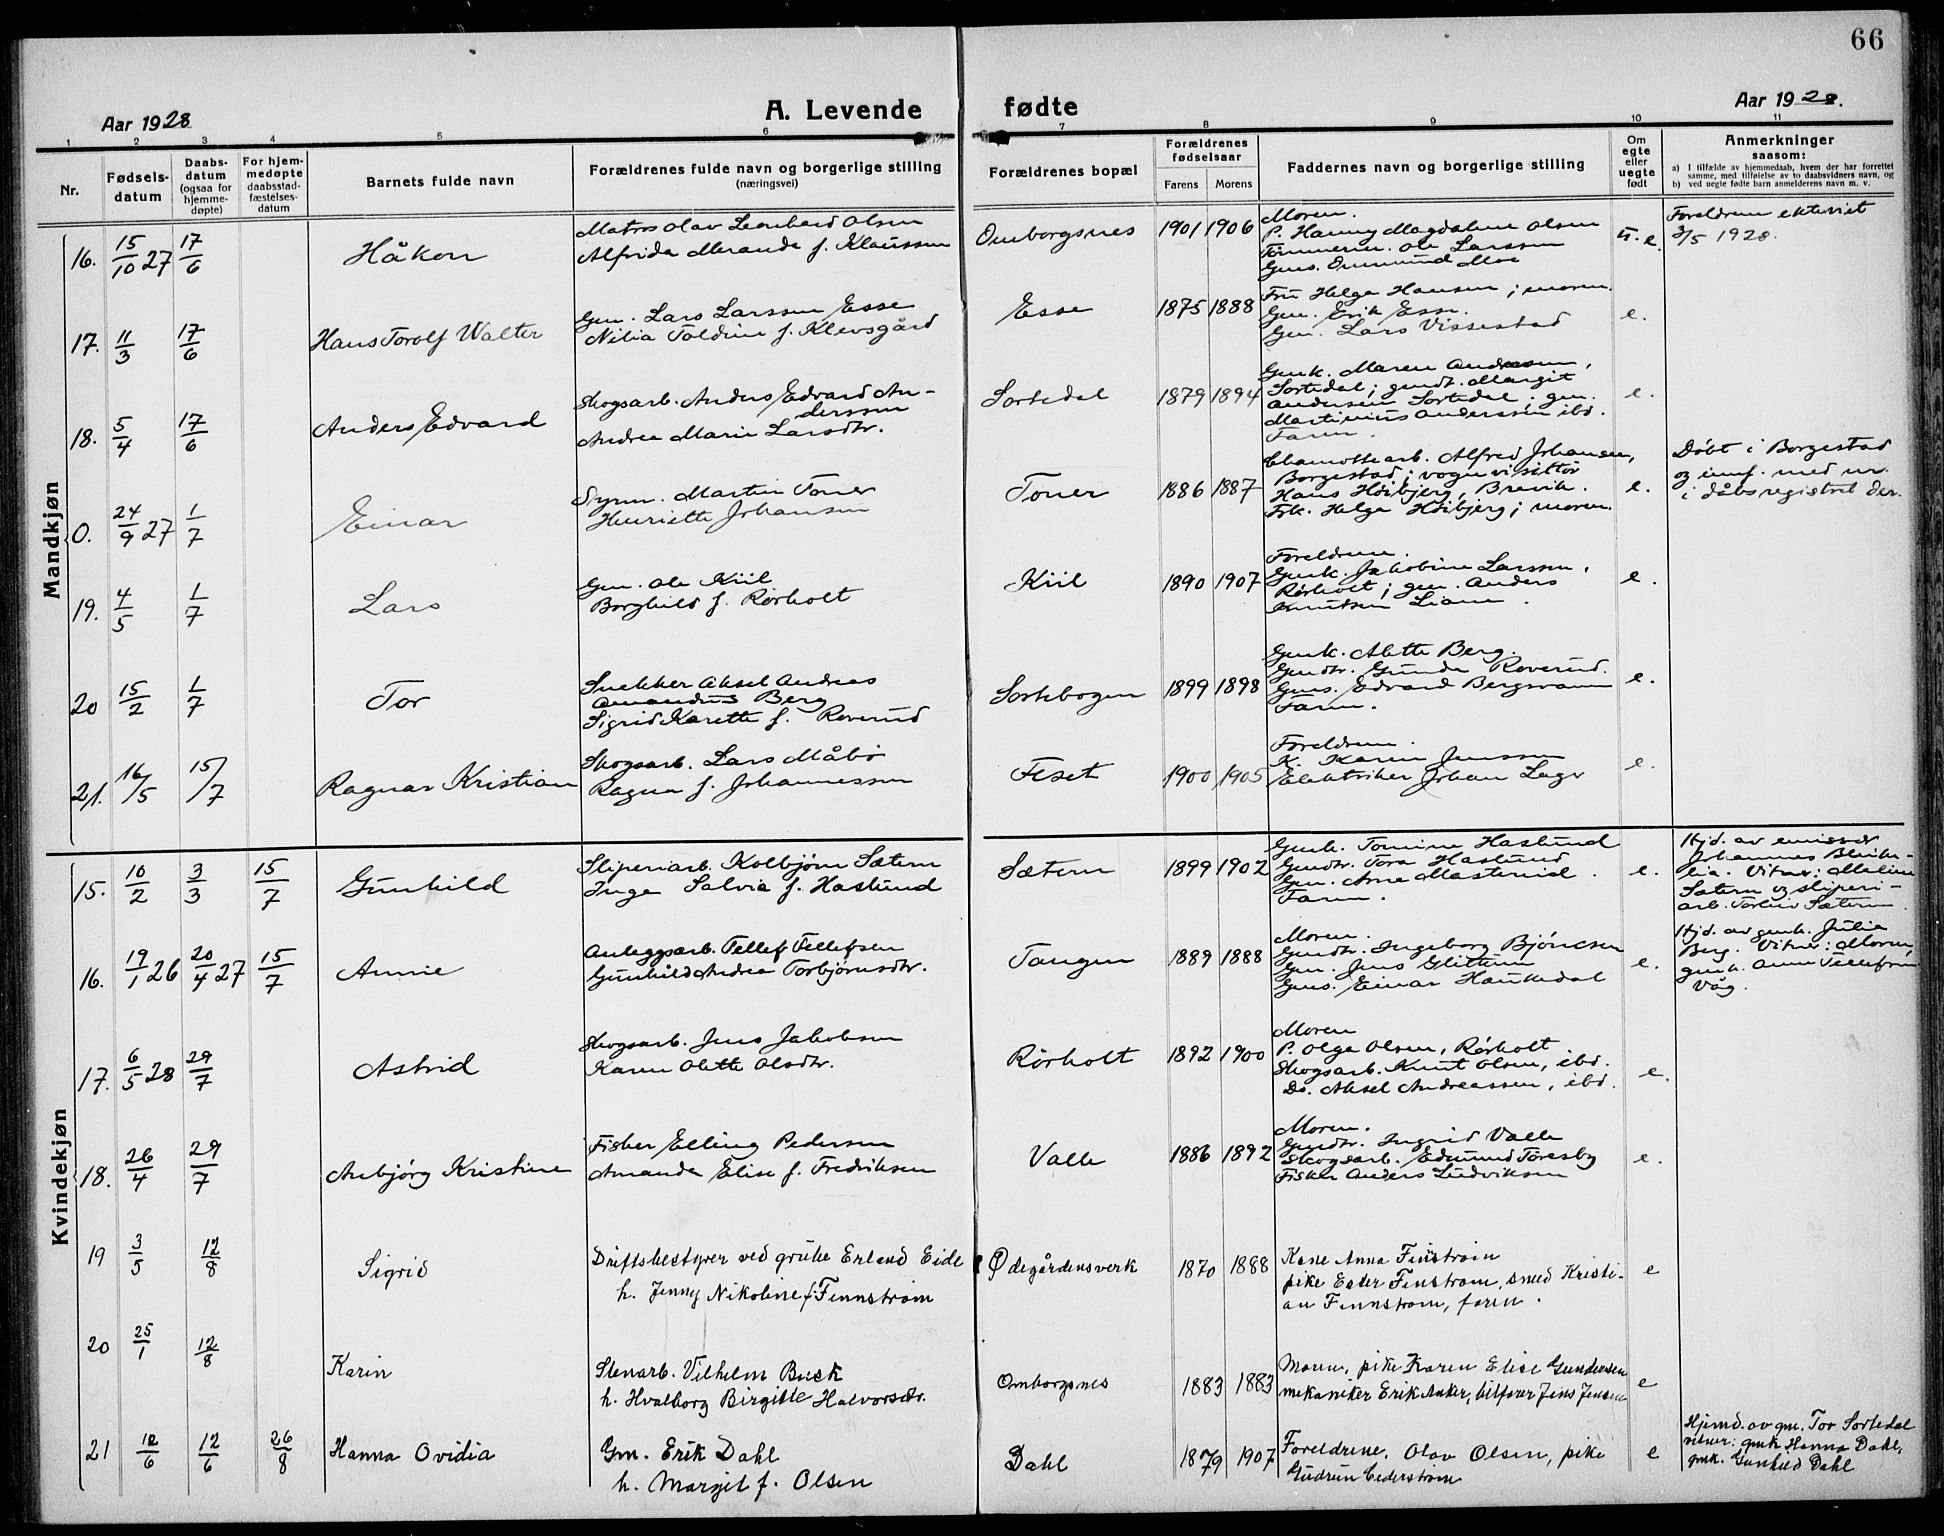 66
Aar 1928
A. Levende fødte
Aar 1928.
1 2 3 4 5 6 7 8 9 10 11
Nr.
Fødselsdatum
Daabsdatum (ogsaa for hjemmedøpte)
For hjemmedøpte daabsstadfæstelsesdatum
Barnets fulde navn
Forældrenes fulde navn og borgerlige stilling (næringsvei)
Forældrenes bopæl
Forældrenes fødselsaar
Farens Morens
Faddernes navn og borgerlige stilling
Om egte eller uegte født
Anmerkninger saasom:
a) I tilfælde av hjemmedaab, hvem der har forrettet samme, med tilføielse av to daabsvidners navn, og
b) ved uegte fødte barn anmelderens navn m. v.
Mandkjøn
16. 15/10 27 17/6 Håkon
Matros Olav Leonhard Olsen
Alfrida Merande f. Klaussen
Omborgsnes 1901 1906
Moren.
P. Hanny Magdalene Olsen
Tømmerm. Ole Larssen
Gms. Ommund Moe
u. e.
Foreldrene ekteviet
3/5 1928.
17. 11/3 17/6 Hans Torolf Walter
Gm. Lars Larssen Esse
Nilia Toldine f. Klevsgård
Esse 1875 1888
Fru Helga Hansen; moren.
Gm. Erik Esse.
Gm. Lars Vissestad
e.
18. 5/4 17/6 Anders Edvard
Skogsarb. Anders Edvard An-
derssen
Andrea Marie Larsdtr.
Sortedal 1879 1894
Gmk. Maren Andressen,
Sortedal; gmdt. Margit
Andersen Sortedal; gm.
Martinius Anderssen ibd.
Faren.
e.
0. 24/9 27 1/7 Einar
Syrm. Martin Toner
Henriette Johansen
Toner 1886 1887
Chamottearb. Alfred Johansen,
Borgestad; vognvisitør
Hans Høibjerg, Brevik.
Frk. Helga Høibjerg; moren.
e.
Døbt i Borgestad
og innf. med nr.
i dåbsregistret der.
19. 4/5 1/7 Lars
Gm. Ole Kiil
Borghild f. Rørholt
Kiil 1890 1907
Foreldrene.
Gmk. Jakobine Larssen,
Rørholt; gm. Anders
Knutsen Liane.
e.
20 15/2 1/7 Tor
Snekker Aksel Andreas
Amandus Berg
Sigrid Karette f. Roverud
Sortebogen 1899 1898
Gmk. Alette Berg.
Gmdtr. Gunda Roverud.
Gms. Edvard Bergsvann
Faren.
e.
21. 16/5 15/7 Ragnar Kristian
Skogsarb. Lars Måbø
Ragna f. Johannessen
Feset 1900 1905
Foreldrene.
K. Karen Jenssen
Elektriker Johan Lager
e.
Kvindekjøn
15. 10/2 3/3 15/7 Gunhild
Sliperiarb. Kolbjørn Sætern
Inga Salvia f. Haslund
Sætern 1899 1902
Gmk. Tomine Haslund
Gmdtr. Tora Haslund
Gm. Arne Mastereid.
Faren.
e.
Hjd. av emissær
Johannes
Vitner: Meline
Sætern og sliperi-
arb. Torleiv Sætern.
16. 19/1 26 20/4 27 15/7 Annie
Anleggsarb. Tellef Tellefsen
Gunhild Andrea Torbjørnsdtr.
Tangen 1889 1888
Moren.
Gmdtr. Ingeborg Bjørnsen
Gm. Jens Glittum
Gms. Einar Haukedal
e.
Hjd. av gmk. Julia
Berg. Vitner: Moren,
gmk. Anne Tellefsen
Våg.
17. 6/5 28 29/7 Astrid
Skogsarb. Jens Jakobsen
Karen Olette Olsdtr.
Rørholt 1892 1900
Moren
P. Olga Olsen, Rørholt
Skogsarb. Knut Olsen, ibd.
Do. Aksel Andreassen, ibd.
e.
18. 26/4 29/7 Anbjørg Kristine
Fisker Elling Pedersen
Amanda Elise f. Fredriksen
Valle 1886 1892
Moren.
Gmdtr. Ingrid Valle
Skogsarb. Edmund Foresby
Fisker Anders Ludviksen
e.
19 3/5 12/8 Sigrid
Driftsbestyrer ved grube Erland Eide
h. Jenny Nikoline f. Finnstrøm
Ødegårdensverk 1870 1888
Kone Anna Finstrøm
pike Ester Finstrøm, smed Kristi-
an Finnstrøm, faren.
e
20 25/1 12/8 Karin
Stenarb. Vilhelm Buck
h. Hvalborg Birgitte Halvorsdtr.
Omborgsnes 1883 1883
Moren, pike Karen Elise Gundersen
mekaniker Erik Anker, bilfører Jens Jensen
e
21 12/6 12/6 26/8 Hanna Ovidia
Gm. Erik Dahl
h. Margit f. Olsen
Dahl 1879 1907
Foreldrene, Olav Olsen, pike
Gudrun Cederstrøm
e
Hjemd. av gm. Tor Sortedal
vitner: gmk Hanna Dahl,
gmk. Gunhild Dahl